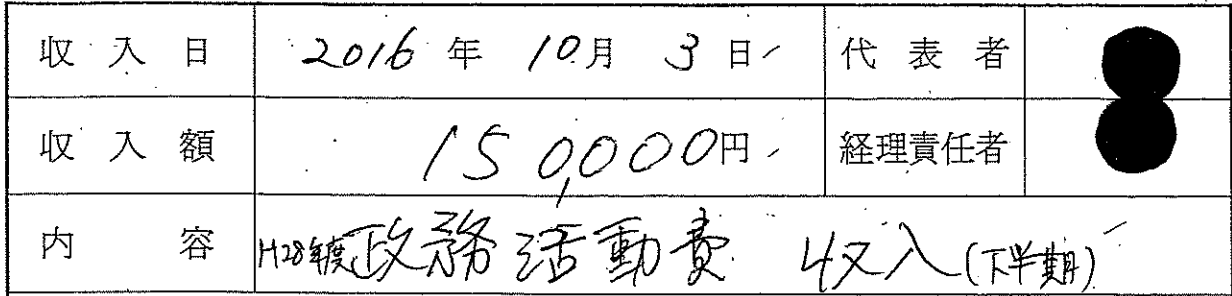 収入日 2016年10月3日 代表者
収入額 150,000円 経理責任者
内容 H28年度政務活動費 収入(下半期)